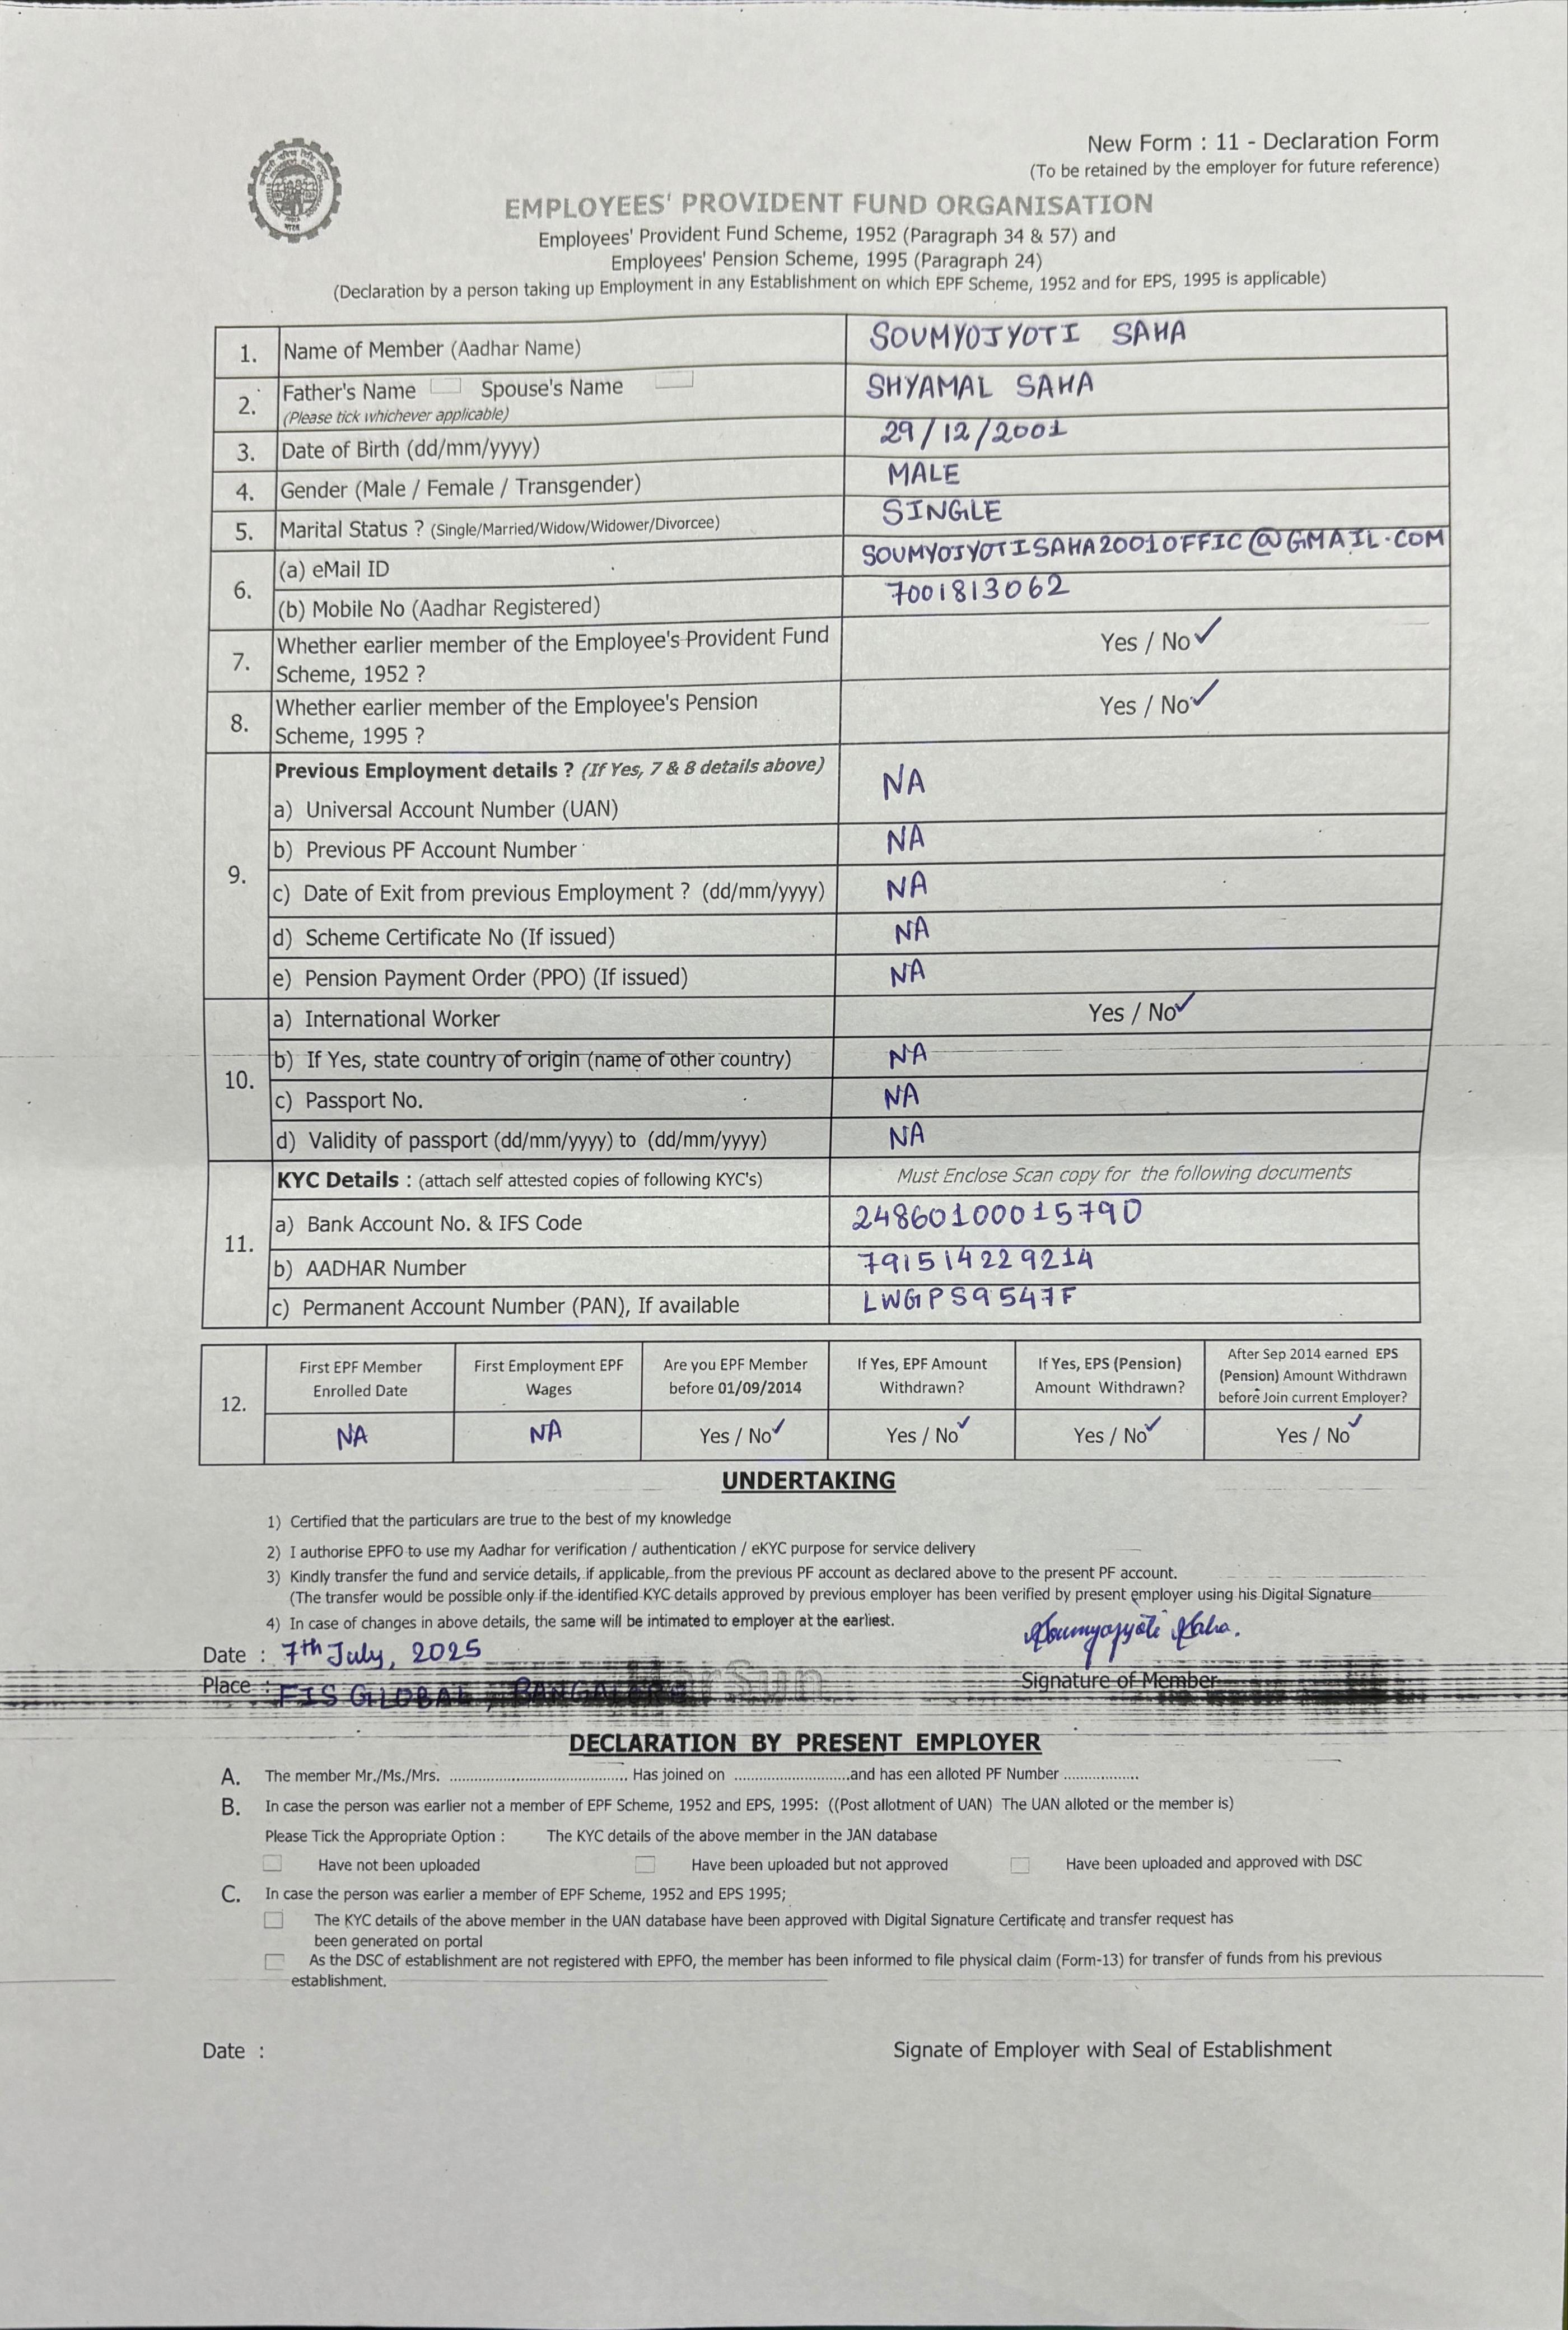 New Form : 11 - Declaration Form
(To be retained by the employer for future reference)
EMPLOYEES' PROVIDENT FUND ORGANISATION
Employees' Provident Fund Scheme, 1952 (Paragraph 34 & 57) and
Employees' Pension Scheme, 1995 (Paragraph 24)
(Declaration by a person taking up Employment in any Establishment on which EPF Scheme, 1952 and for EPS, 1995 is applicable)
1. Name of Member (Aadhar Name) SOUMYOJYOTI SAHA
2. Father's Name Spouse's Name SHYAMAL SAHA
(Please tick whichever applicable)
3. Date of Birth (dd/mm/yyyy) 29/12/2001
4. Gender (Male / Female / Transgender) MALE
5. Marital Status ? (Single/Married/Widow/Widower/Divorcee) SINGLE
6. (a) eMail ID SOUMYOJYOTISAHA2001OFFIC@GMAIL.COM
(b) Mobile No (Aadhar Registered) 7001813062
7. Whether earlier member of the Employee's Provident Fund Yes / No ✓
Scheme, 1952 ?
8. Whether earlier member of the Employee's Pension Yes / No ✓
Scheme, 1995 ?
9. Previous Employment details ? (If Yes, 7 & 8 details above)
a) Universal Account Number (UAN) NA
b) Previous PF Account Number NA
c) Date of Exit from previous Employment ? (dd/mm/yyyy) NA
d) Scheme Certificate No (If issued) NA
e) Pension Payment Order (PPO) (If issued) NA
10. a) International Worker Yes / No ✓
b) If Yes, state country of origin (name of other country) NA
c) Passport No. NA
d) Validity of passport (dd/mm/yyyy) to (dd/mm/yyyy) NA
11. KYC Details : (attach self attested copies of following KYC's) Must Enclose Scan copy for the following documents
a) Bank Account No. & IFS Code 24860100015790
b) AADHAR Number 791514229214
c) Permanent Account Number (PAN), If available LWGPS9547F
12. First EPF Member Enrolled Date NA
First Employment EPF Wages NA
Are you EPF Member before 01/09/2014 Yes / No ✓
If Yes, EPF Amount Withdrawn? Yes / No ✓
If Yes, EPS (Pension) Amount Withdrawn? Yes / No ✓
After Sep 2014 earned EPS (Pension) Amount Withdrawn before Join current Employer? Yes / No ✓
UNDERTAKING
1) Certified that the particulars are true to the best of my knowledge
2) I authorise EPFO to use my Aadhar for verification / authentication / eKYC purpose for service delivery
3) Kindly transfer the fund and service details, if applicable, from the previous PF account as declared above to the present PF account.
(The transfer would be possible only if the identified KYC details approved by previous employer has been verified by present employer using his Digital Signature
4) In case of changes in above details, the same will be intimated to employer at the earliest.
Soumyojyoti Saha.
Date : 7th July, 2025
Place : FIS GLOBAL, BANGALORE Signature of Member
DECLARATION BY PRESENT EMPLOYER
A. The member Mr./Ms./Mrs. ........................................ Has joined on ..........................and has een alloted PF Number .................
B. In case the person was earlier not a member of EPF Scheme, 1952 and EPS, 1995: ((Post allotment of UAN) The UAN alloted or the member is)
Please Tick the Appropriate Option : The KYC details of the above member in the JAN database
Have not been uploaded Have been uploaded but not approved Have been uploaded and approved with DSC
C. In case the person was earlier a member of EPF Scheme, 1952 and EPS 1995;
The KYC details of the above member in the UAN database have been approved with Digital Signature Certificate and transfer request has
been generated on portal
As the DSC of establishment are not registered with EPFO, the member has been informed to file physical claim (Form-13) for transfer of funds from his previous
establishment.
Date : Signate of Employer with Seal of Establishment